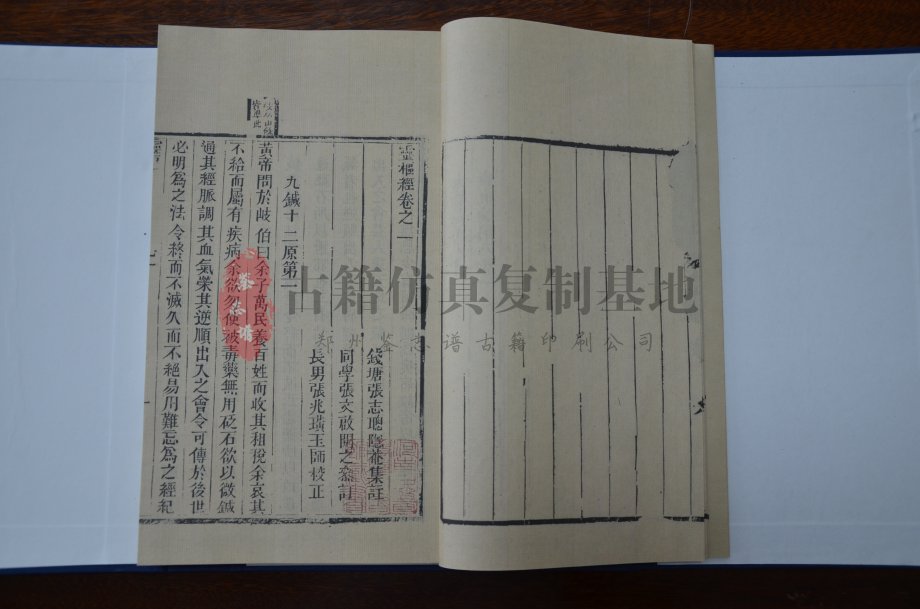 靈樞經卷之一
錢塘張志聰隱菴集註
同學張文啟開之叅訂
長男張兆璜玉師校正
九鍼十二原第一
黃帝問於岐伯曰余子萬民養百姓而收其租稅余哀其
不給而屬有疾病余欲勿使被毒藥無用砭石欲以微鍼
通其經脈調其血氣榮其逆順出入之會令可傳於後世
必明爲之法令終而不滅久而不絕易用難忘爲之經紀
皆準此
古籍仿真复制基地
郑州鉴志谱古籍印刷公司